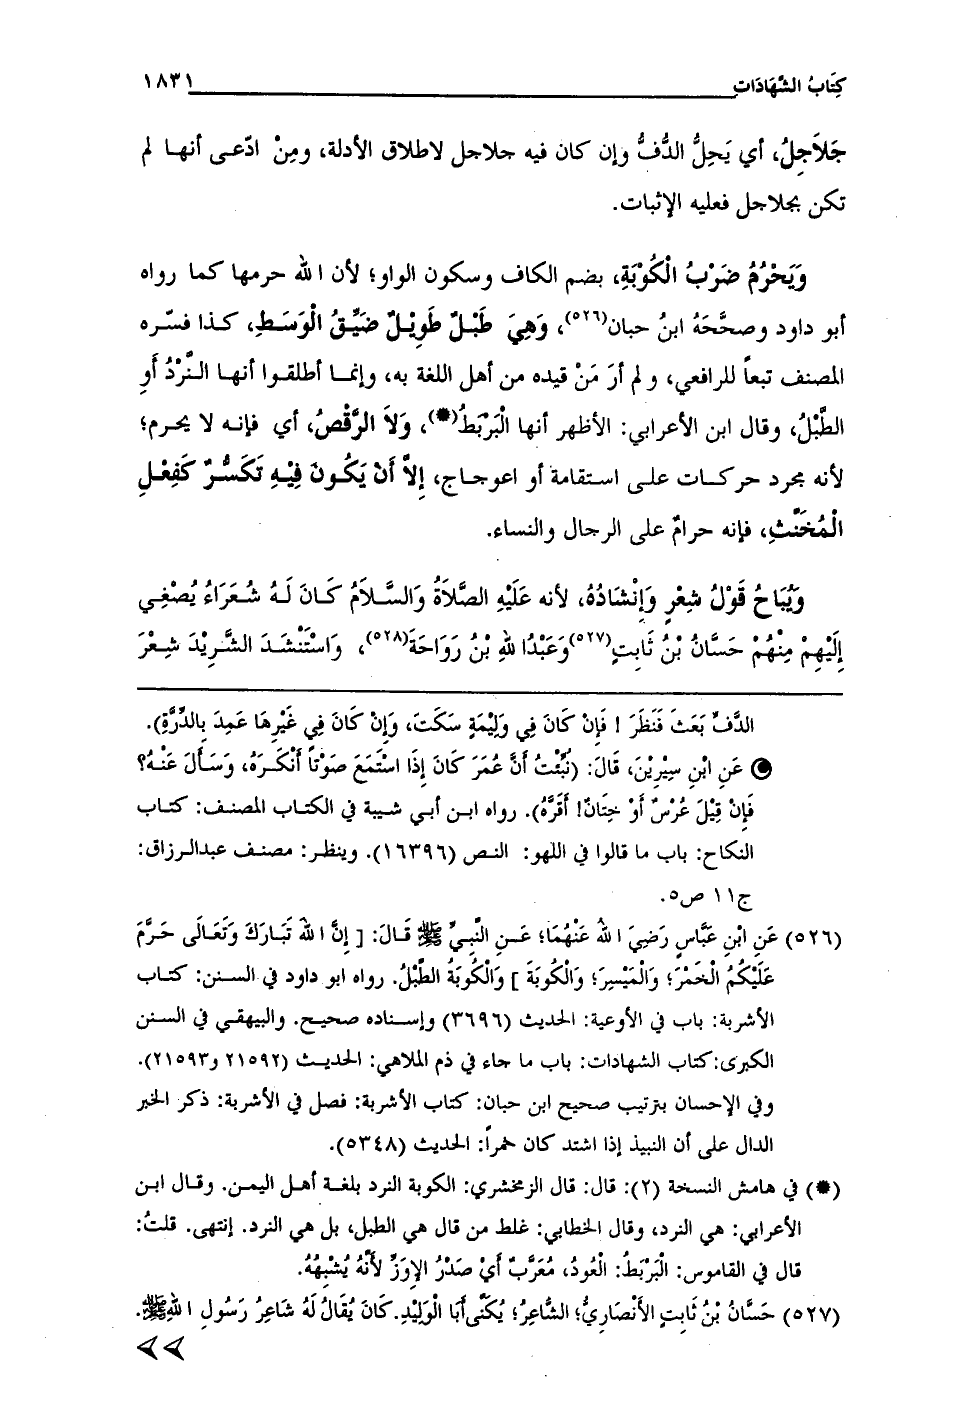 كِتَابُ الشَّهَادَاتِ ١٨٣١
جَلاَجِلُ، أي يَحِلُّ الدُّفُّ وإن كان فيه جلاجل لاطلاق الأدلة، ومِنْ ادّعى أنها لم
تكن بجلاجل فعليه الإثبات.
وَيَحْرُمُ ضَرْبُ الْكُوبَةِ، بضم الكاف وسكون الواو؛ لأن الله حرمها كما رواه
أبو داود وصحَّحَهُ ابنُ حبان(٥٢٦)، وَهِيَ طَبْلٌ طَوِيْلٌ ضَيِّقُ الْوَسَطِ، كذا فسّره
المصنف تبعاً للرافعي، ولم أرَ مَنْ قيده من أهل اللغة به، وإنما أطلقوا أنها النَّرْدُ أَوِ
الطَّبْلُ، وقال ابن الأعرابي: الأظهر أنها الْبَرْبَطُ(*)، وَلاَ الرَّقْصُ، أي فإنه لا يحرم؛
لأنه مجرد حركات على استقامة أو اعوجاج، إِلاَّ أَنْ يَكُونَ فِيْهِ تَكَسُّرٌ كَفِعْلِ
الْمُخَنَّثِ، فإنه حرامٌ على الرجال والنساء.
وَيُبَاحُ قَوْلُ شِعْرٍ وَإِنْشَادُهُ، لأنه عَلَيْهِ الصَّلاَةُ وَالسَّلاَمُ كَانَ لَهُ شُعَرَاءُ يُصْغِي
إِلَيْهِمْ مِنْهُمْ حَسَّانُ بْنُ ثَابِتٍ(٥٢٧) وَعَبْدُاللهِ بْنُ رَوَاحَةَ(٥٢٨)، وَاسْتَنْشَدَ الشَّرِيْدَ شِعْرَ
الدَّفِّ بَعَثَ فَنَظَرَ ! فَإِنْ كَانَ فِي وَلِيْمَةٍ سَكَتَ، وَإِنْ كَانَ فِي غَيْرِهَا عَمِدَ بِالدِّرَّةِ).
عَنِ ابْنِ سِيْرِيْنَ، قَالَ: (نُبِّئْتُ أَنَّ عُمَرَ كَانَ إِذَا اسْتَمَعَ صَوْتاً أَنْكَرَهُ، وَسَأَلَ عَنْهُ؟
فَإِنْ قِيْلَ عُرْسٌ أَوْ خِتَانٌ! أَقَرَّهُ). رواه ابن أبي شيبة في الكتاب المصنف: كتاب
النكاح: باب ما قالوا في اللهو: النص (١٦٣٩٦). وينظر: مصنف عبدالرزاق:
ج١١ ص٥.
(٥٢٦) عَنِ ابْنِ عَبَّاسٍ رَضِيَ اللهُ عَنْهُمَا؛ عَنِ النَّبِيِّ ﷺ قَالَ: [ إِنَّ اللهَ تَبَارَكَ وَتَعَالَى حَرَّمَ
عَلَيْكُمُ الْخَمْرَ؛ وَالْمَيْسِرَ؛ وَالْكُوبَةَ ] وَالْكُوبَةُ الطَّبْلُ. رواه ابو داود في السنن: كتاب
الأشربة: باب في الأوعية: الحديث (٣٦٩٦) وإسناده صحيح. والبيهقي في السنن
الكبرى:كتاب الشهادات: باب ما جاء في ذم الملاهي: الحديث (٢١٥٩٢ و٢١٥٩٣).
وفي الإحسان بترتيب صحيح ابن حبان: كتاب الأشربة: فصل في الأشربة: ذكر الخبر
الدال على أن النبيذ إذا اشتد كان خمراً: الحديث (٥٣٤٨).
(*) في هامش النسخة (٢): قال: قال الزمخشري: الكوبة النرد بلغة أهل اليمن. وقال ابن
الأعرابي: هي النرد، وقال الخطابي: غلط من قال هي الطبل، بل هي النرد. إنتهى. قلتُ:
قال في القاموس: الْبَرْبَطُ: الْعُودُ، مُعَرَّبٌ أَيْ صَدْرُ الإِوَزِّ لأَنَّهُ يُشْبِهُهُ.
(٥٢٧) حَسَّانُ بْنُ ثَابِتٍ الأَنْصَارِيُّ؛ الشَّاعِرُ؛ يُكَنَّى أَبَا الْوَلِيْدِ. كَانَ يُقَالُ لَهُ شَاعِرُ رَسُولِ اللهِﷺ.